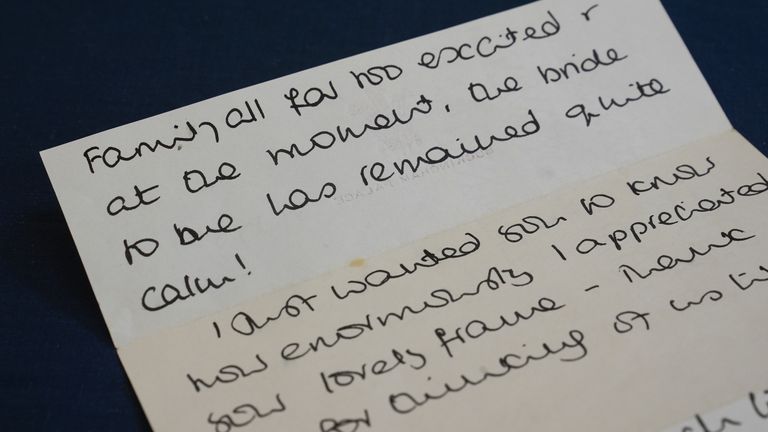 Family all far too excited
at the moment, the bride
to be has remained quite
calm!
I just wanted you to know
how enormously I appreciated
your lovely frame - Thank
for thinking of us